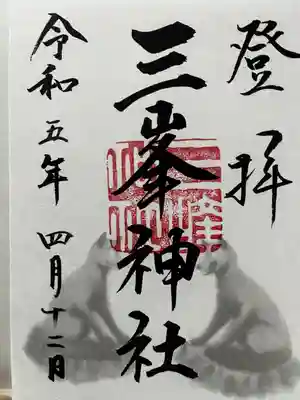 登拝
三峯神社
令和五年 四月十二日